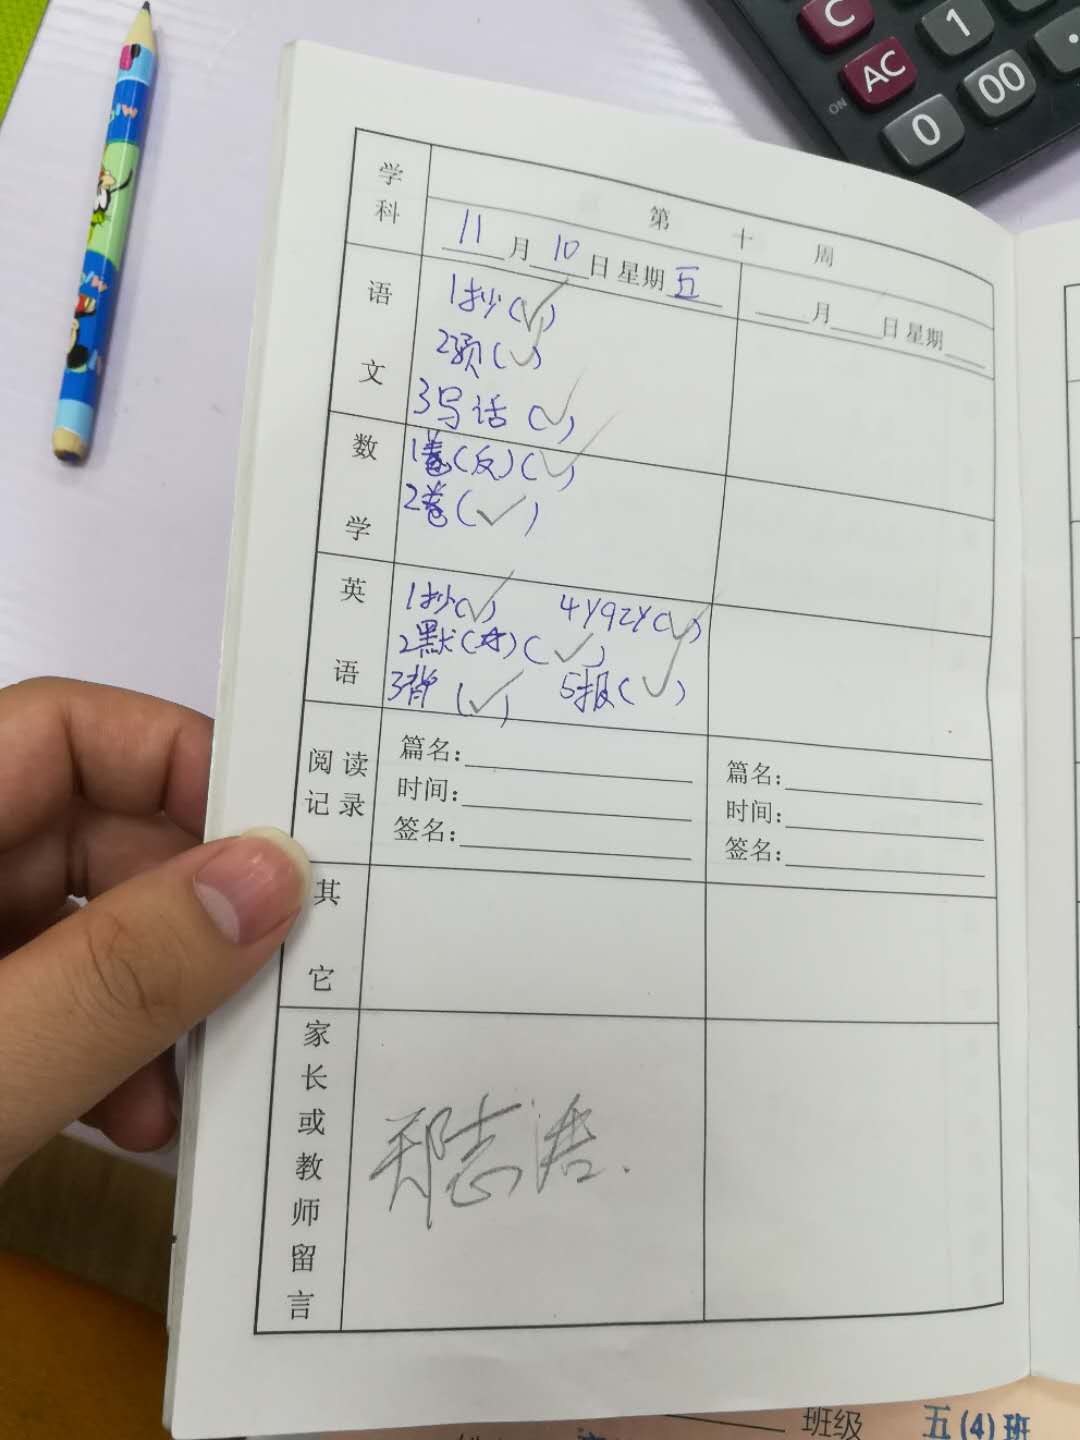 C
AC
ON
1
0
00
.
学科
第 十 周
11月10日 星期五
___月___日 星期___
语文
1抄(✓)
2预(✓)
3写话(✓)
数学
1卷(反)(✓)
2卷(✓)
英语
1抄(✓) 4YqzY(✓)
2默(☆)(✓)
3背(✓) 5报(✓)
阅读记录
篇名:
时间:
签名:
篇名:
时间:
签名:
其它
家长或教师留言
郑志浩.
班级 五(4)班